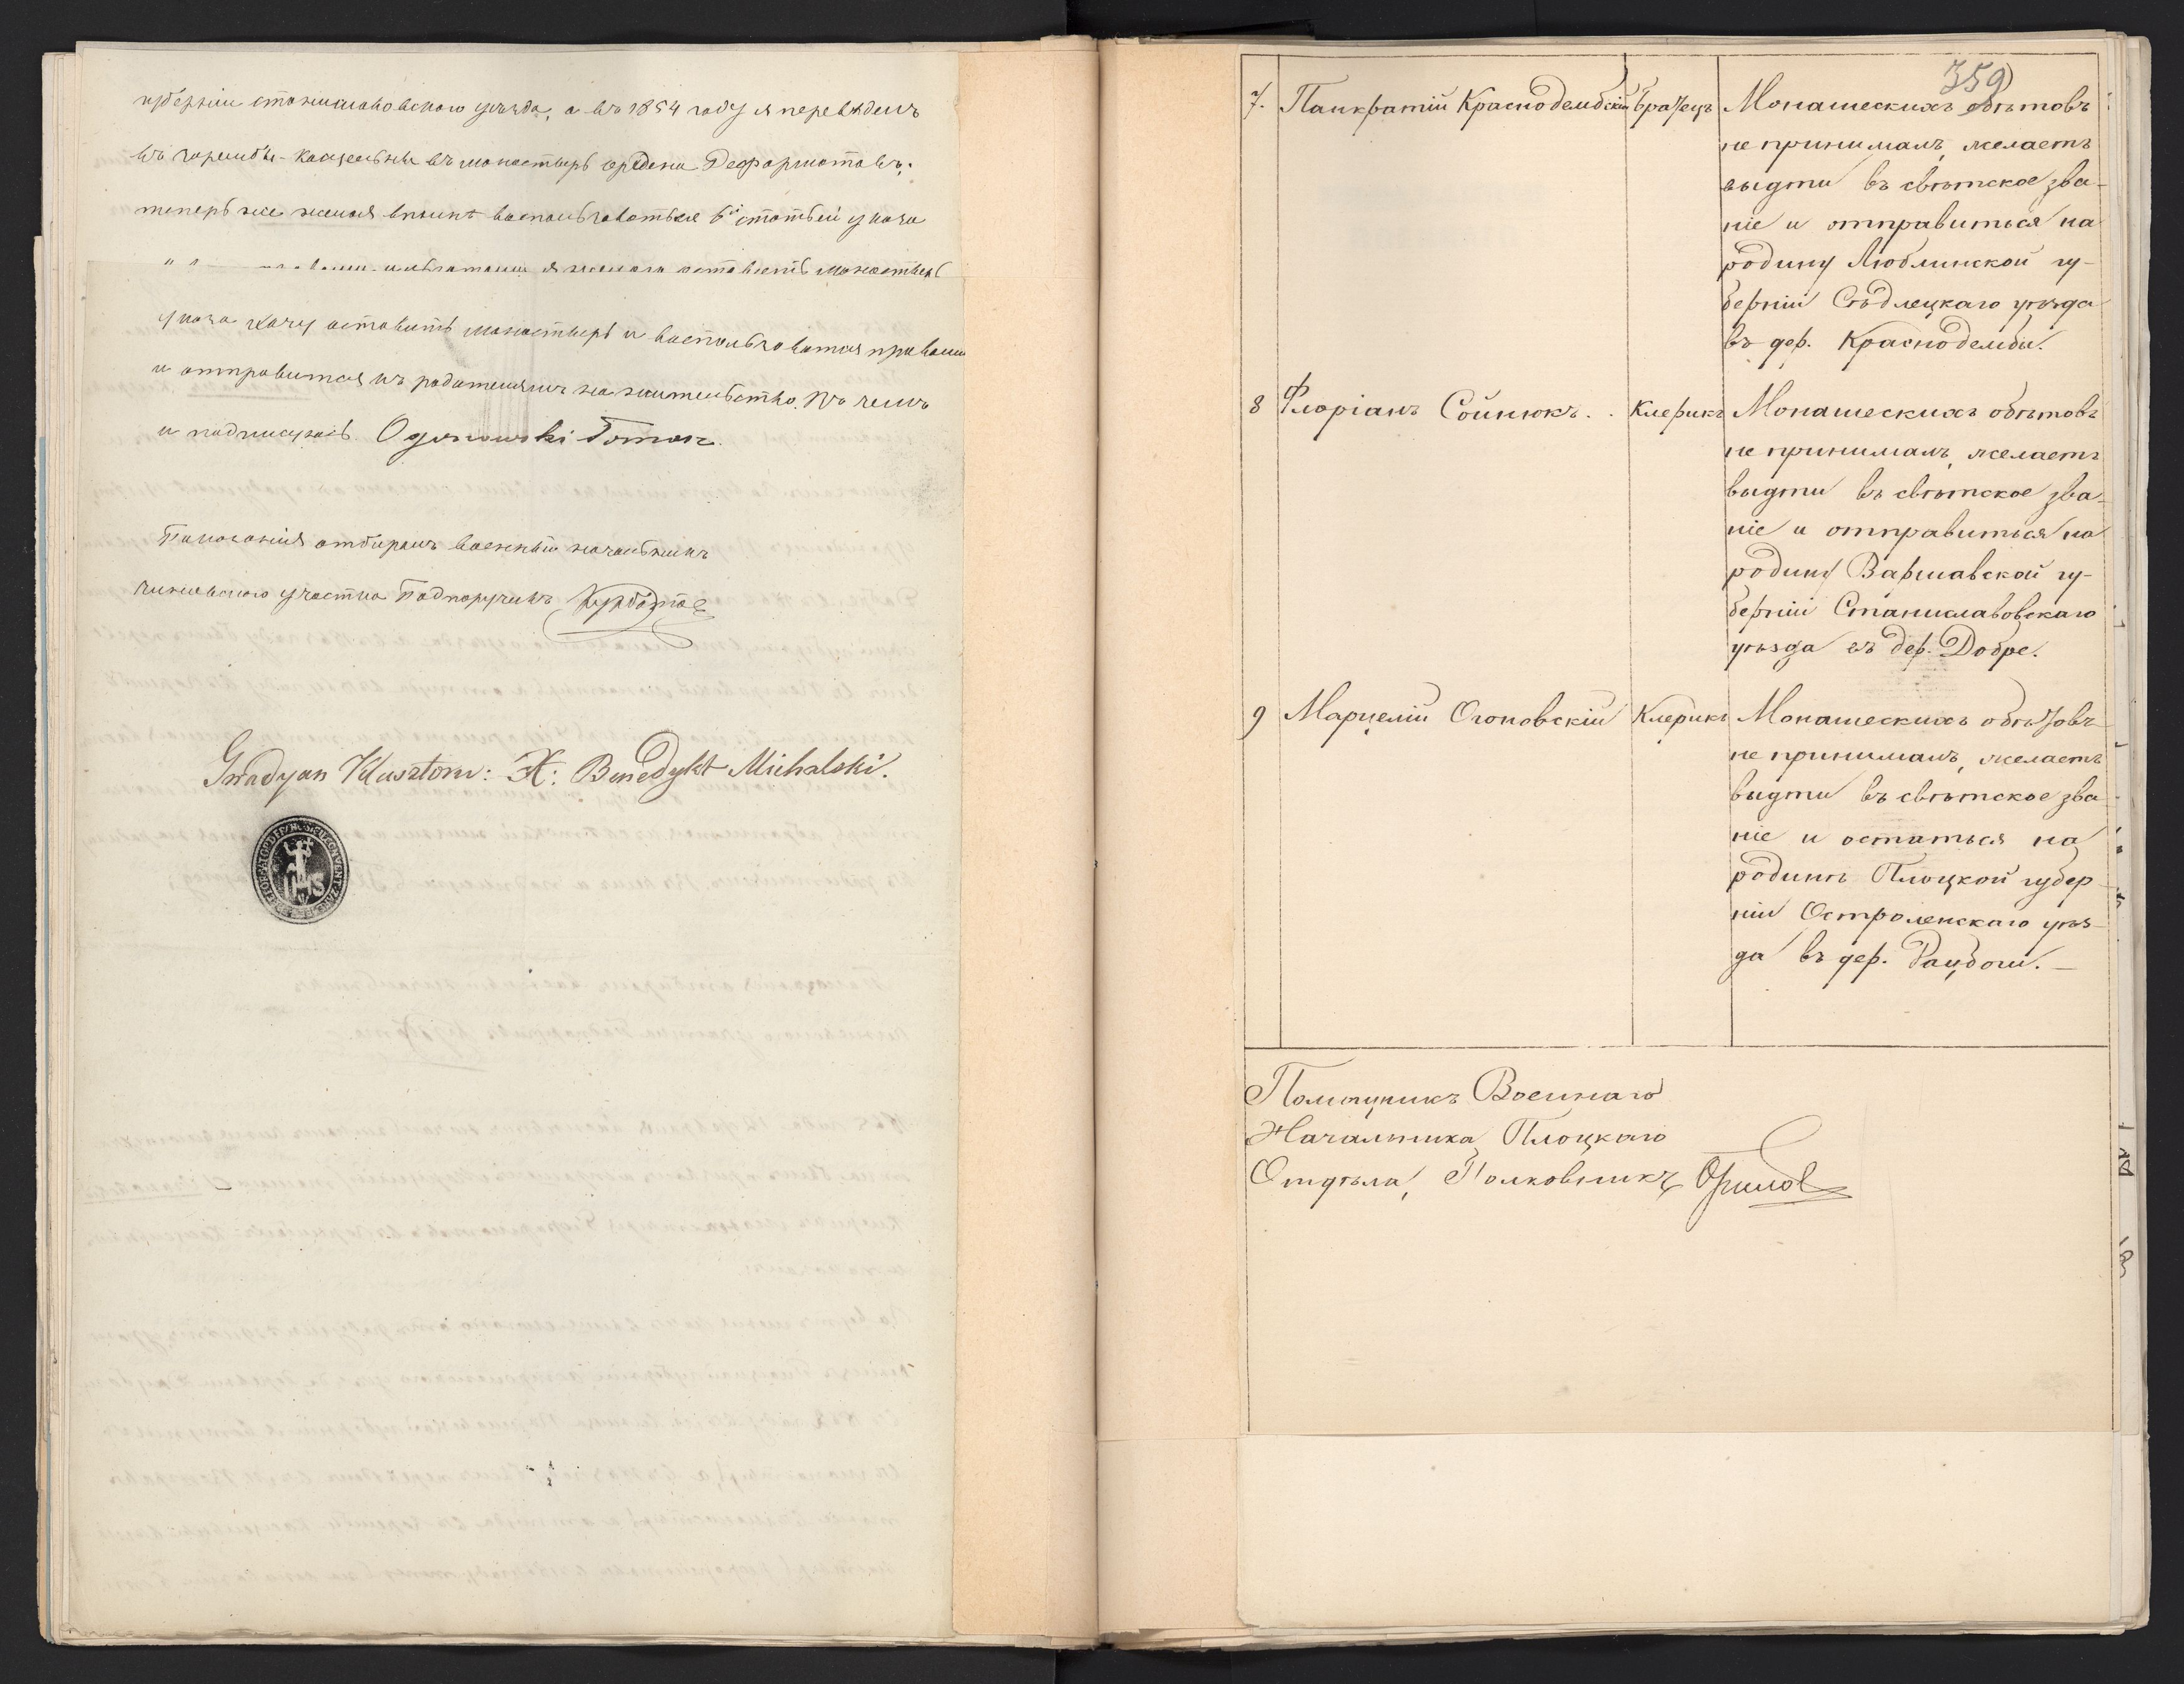 губернии станиславовского уѣзда, а въ 1854 году я переведенъ
въ Зарембы-Косцельны въ монастырь ордена Реформатовъ;
теперь же желая вполнѣ воспользоваться 6й статьей указа
я желаю оставить монастырь
указа хочу оставить монастырь и воспользоватся правами
и отправится къ родителямъ на жительство. Въ чемъ
и подписуюсь. Ogonowski Tomasz.
Показанія отбиралъ военный начальникъ
Чижевского участка Подпоручикъ
Gwadyan Klasztoru: X: Benedykt Michalski.
IHS
359
7. Панкратій Краснодембскій братецъ Монашескихъ обѣтовъ
не принималъ, желаетъ
выдти въ свѣтское зва-
ніе и отправиться на
родину Люблинской гу-
берніи Сѣдлецкаго уѣзда
въ дер. Краснодембы.
8 Флоріанъ Сойнюкъ. . Клерикъ Монашескихъ обѣтовъ
не принималъ, желаетъ
выдти въ свѣтское зва-
ніе и отправиться на
родину Варшавской гу-
берніи Станиславовскаго
уѣзда въ дер. Добре.
9 Марцелій Огоновскій Клерикъ Монашескихъ обѣтовъ
не принималъ, желаетъ
выдти въ свѣтское зва
ніе и остаться на
родинѣ Плоцкой губер-
ніи Остроленскаго уѣз-
да въ дер. Рацборы. —
Помощникъ Военнаго
Начальника Плоцкаго
Отдѣла, Полковникъ